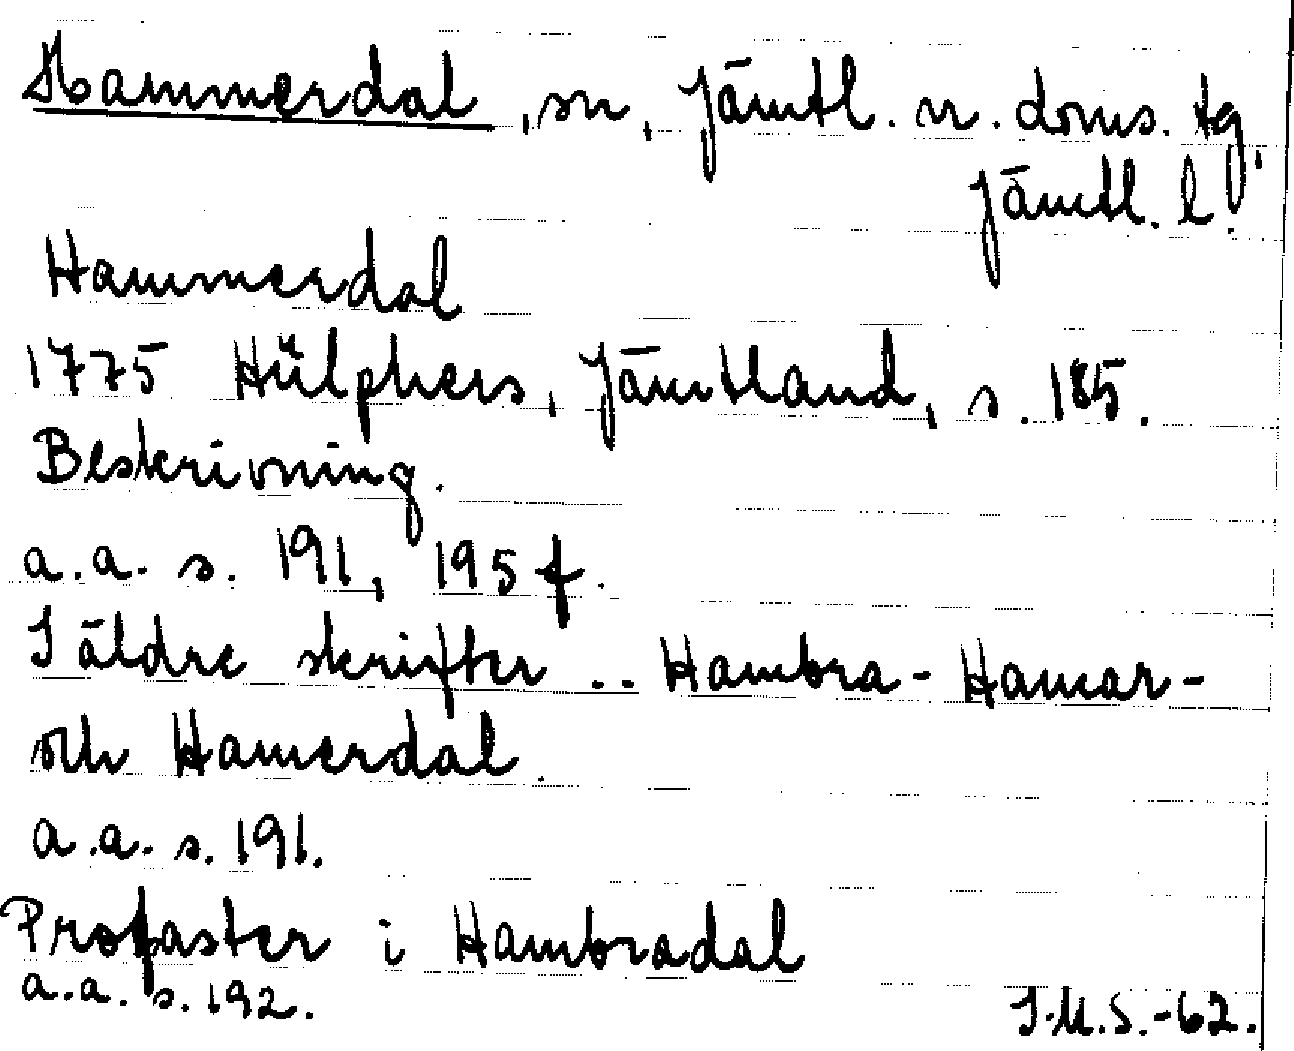 Hammerdal, sn, Jämtl. n. doms. tg,
Jämtl. l.
Hammerdal
1775 Hülphers, Jämtland, s. 185.
Beskrivning.
a.a. s. 191, 195 f.
I äldre skrifter .. Hambra- Hamar-
och Hamerdal.
a.a. s. 191.
Profaster i Hambradal
a.a. s. 192.
I.M.S.-62.